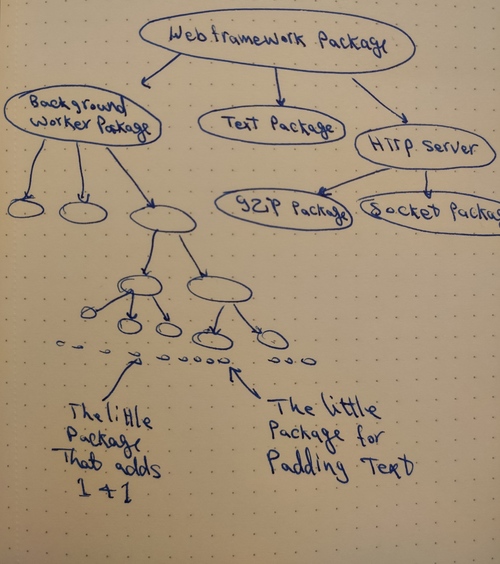 Web framework Package
Background
Worker Package
Text Package
HTTP Server
gZIP Package
Socket Packag
The little
Package
That adds
1 + 1
The little
Package for
Padding Text